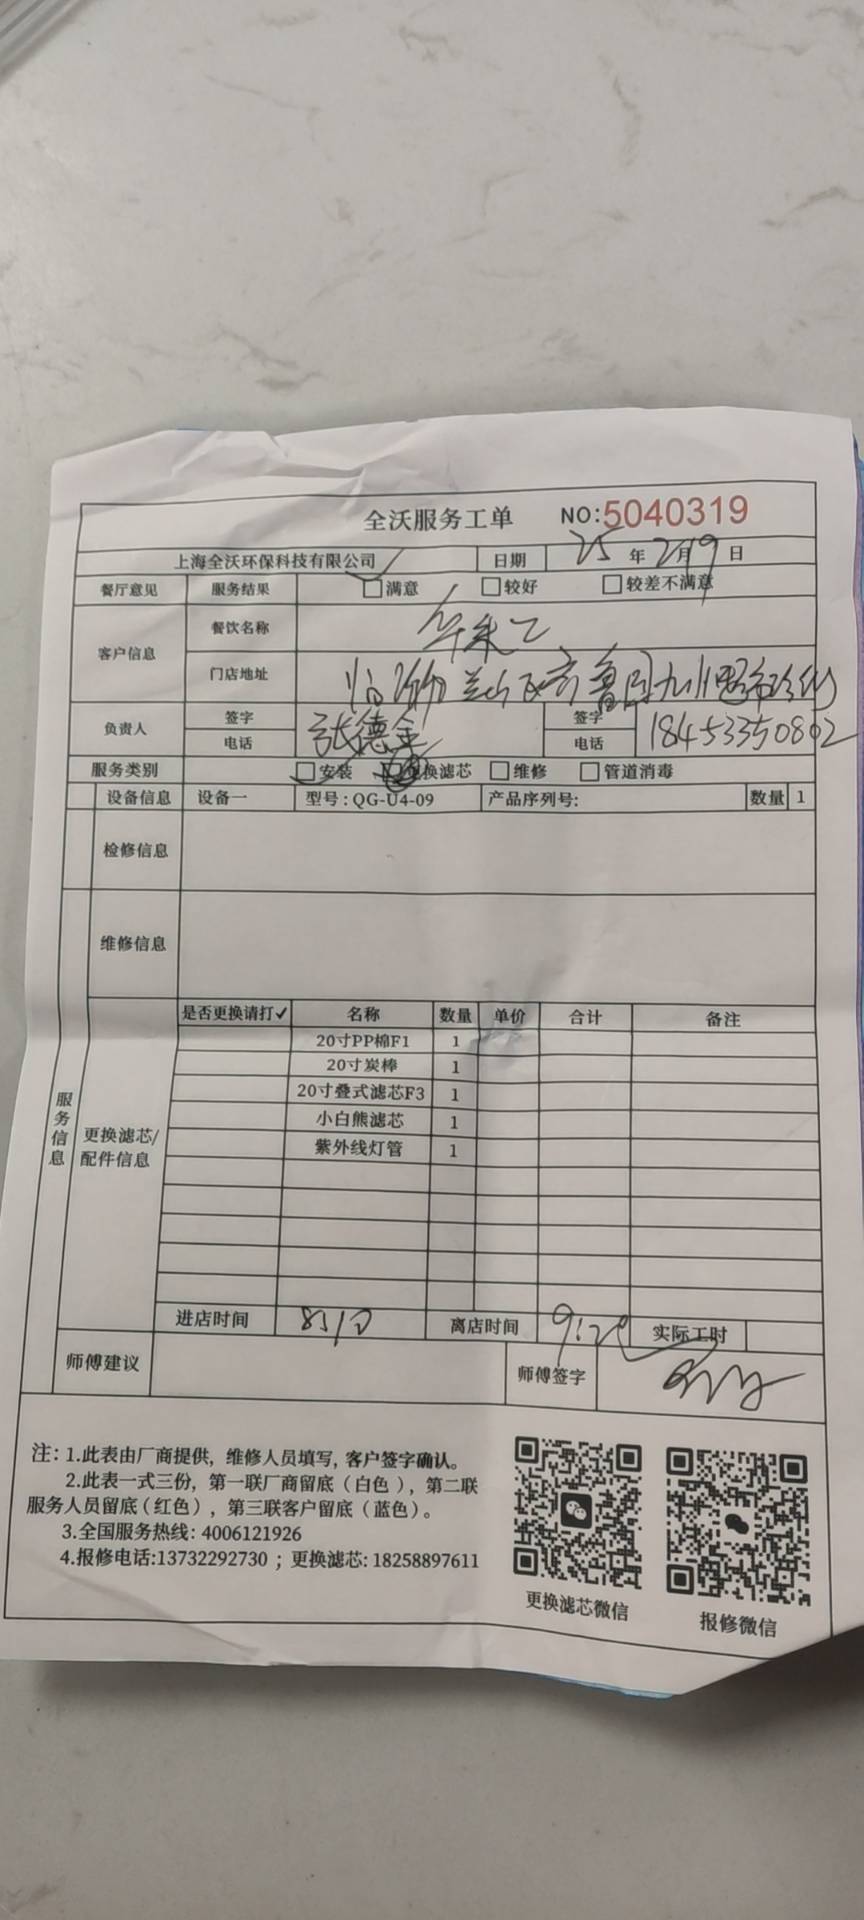 全沃服务工单 NO:5040319
上海全沃环保科技有限公司 日期 25 年 2月19 日
餐厅意见 服务结果 满意 较好 较差不满意
客户信息 餐饮名称 华莱士
门店地址
负责人 签字 张德金 签字
电话 电话 18453350802
服务类别 安装 更换滤芯 维修 管道消毒
设备信息 设备一 型号:QG-U4-09 产品序列号: 数量 1
检修信息
维修信息
服务信息
更换滤芯/配件信息
是否更换请打✓ 名称 数量 单价 合计 备注
20寸PP棉F1 1
20寸炭棒 1
20寸叠式滤芯F3 1
小白熊滤芯 1
紫外线灯管 1
进店时间 离店时间 实际工时
师傅建议 师傅签字
注: 1.此表由厂商提供, 维修人员填写, 客户签字确认。
2.此表一式三份, 第一联厂商留底(白色), 第二联
服务人员留底(红色), 第三联客户留底(蓝色)。
3.全国服务热线: 4006121926
4.报修电话:13732292730 ; 更换滤芯: 18258897611
更换滤芯微信 报修微信